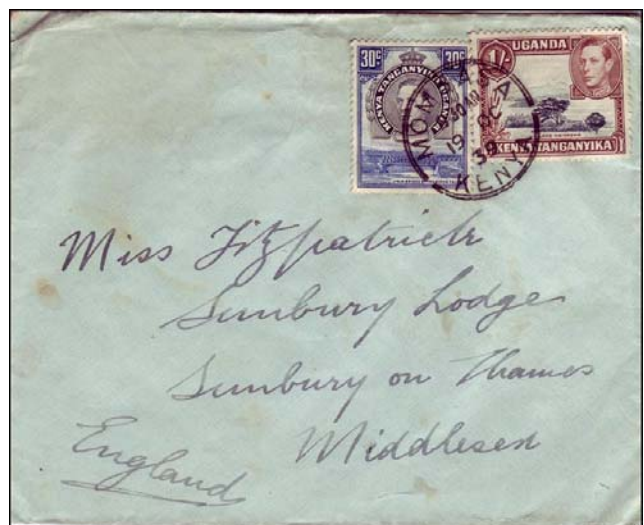 30c 30c
KENYA TANGANYIKA UGANDA
UGANDA
1/-
KENYA TANGANYIKA
MOMBASA
19 OC
39
KENYA
Miss Fitzpatrick
Sunbury Lodge
Sunbury on Thames
Middlesex
England